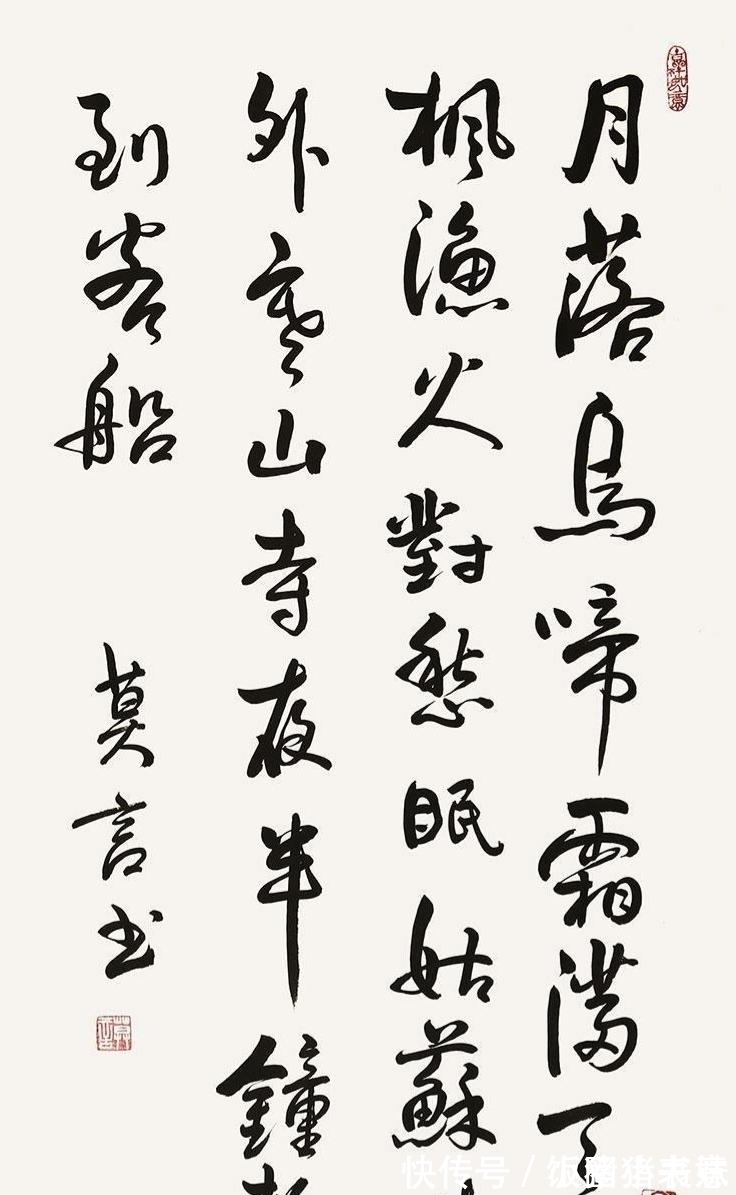 月落烏啼霜滿天
枫漁火對愁眠姑蘇
外寒山寺夜半鐘
到客船
莫言书
快传号 /